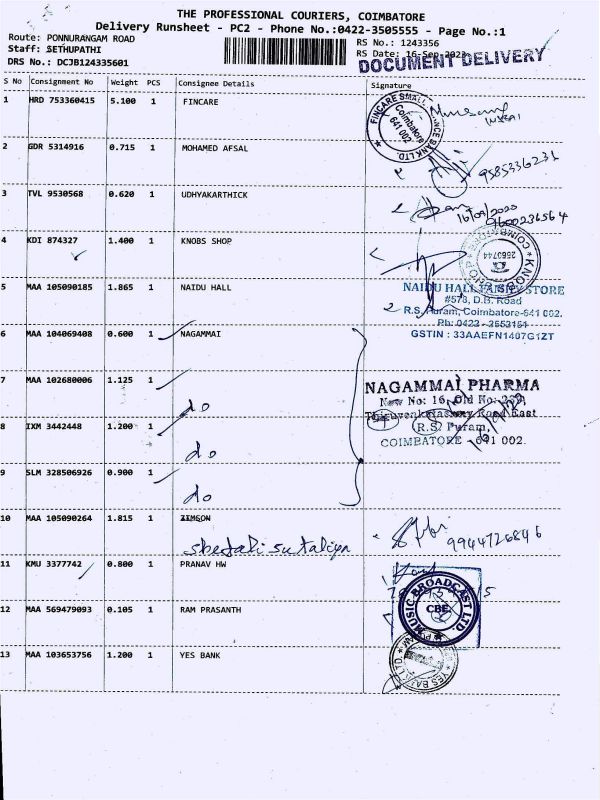 THE PROFESSIONAL COURIERS, COIMBATORE
Delivery Runsheet - PC2 - Phone No.:0422-3505555 - Page No.:1
Route: PONNURANGAM ROAD
Staff: SETHUPATHI
DRS No.: DCJB124335601
RS No.: 1243356
RS Date: 16-Sep-2023
DOCUMENT DELIVERY
S No Consignment No Weight PCS Consignee Details Signature
1 HRD 753360415 5.100 1 FINCARE
FINCARE SMALL FINANCE BANK LTD.
Coimbatore
641 002
2 GDR 5314916 0.715 1 MOHAMED AFSAL
9585336231
3 TVL 9530568 0.620 1 UDHYAKARTHICK
9600236564
4 KDI 874327 1.400 1 KNOBS SHOP
KNOBS SHOP COIMBATORE
2560744
5 MAA 105090185 1.865 1 NAIDU HALL
NAIDU HALL FAMILY STORE
#578, D.B. Road
R.S. Puram, Coimbatore-641 002.
Ph: 0422 - 2553151
GSTIN : 33AAEFN1407G1ZT
6 MAA 104069408 0.600 1 NAGAMMAI
7 MAA 102680006 1.125 1
do
NAGAMMAI PHARMA
New No: 16, Old No:
Road East
(R.S) Puram,
COIMBATORE - 641 002.
8 IXM 3442448 1.200 1
do
9 SLM 328506926 0.900 1
do
10 MAA 105090264 1.815 1 ZIMSON
shefali sutaliya
9944726846
11 KMU 3377742 0.800 1 PRANAV HW
12 MAA 569479093 0.105 1 RAM PRASANTH
MUSIC BROADCAST LTD.
CBE.
13 MAA 103653756 1.200 1 YES BANK
YES BANK LTD.